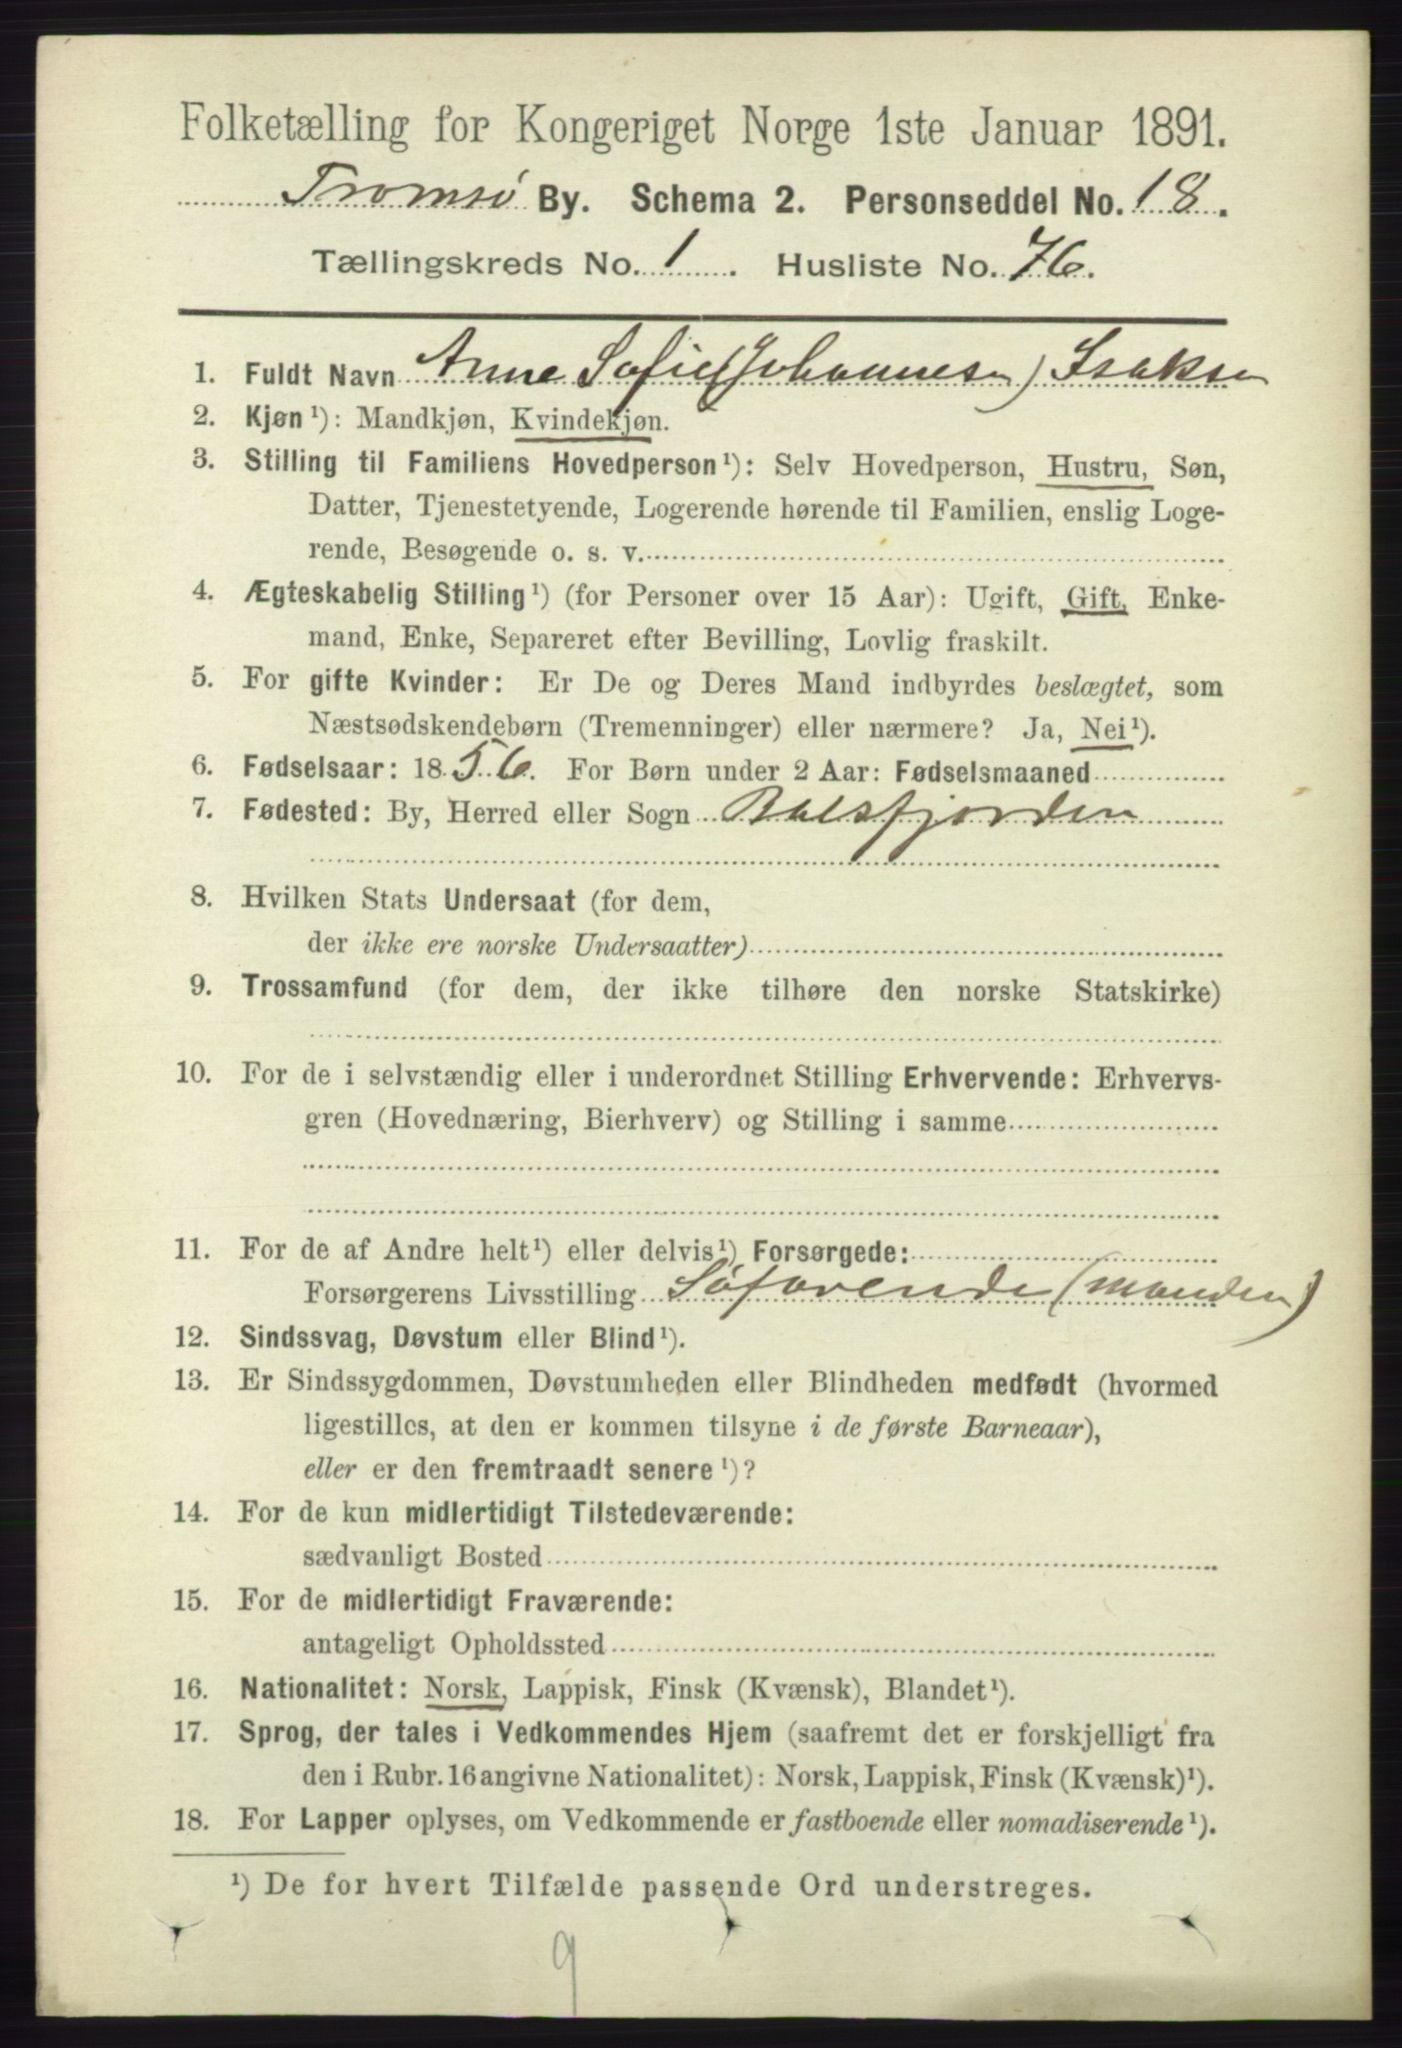 Folketælling for Kongeriget Norge 1ste Januar 1891.
Tromsø By. Schema 2. Personseddel No. 18.
Tællingskreds No. 1. Husliste No. 76.
1. Fuldt Navn Anne Sofie (Johannesn) Isaksen
2. Kjøn¹): Mandkjøn, Kvindekjøn.
3. Stilling til Familiens Hovedperson¹): Selv Hovedperson, Hustru, Søn,
Datter, Tjenestetyende, Logerende hørende til Familien, enslig Loge-
rende, Besøgende o. s. v.
4. Ægteskabelig Stilling¹) (for Personer over 15 Aar): Ugift, Gift, Enke-
mand, Enke, Separeret efter Bevilling, Lovlig fraskilt.
5. For gifte Kvinder: Er De og Deres Mand indbyrdes beslægtet, som
Næstsødskendebørn (Tremenninger) eller nærmere? Ja, Nei¹).
6. Fødselsaar: 1856. For Børn under 2 Aar: Fødselsmaaned
7. Fødested: By, Herred eller Sogn Balsfjorden
8. Hvilken Stats Undersaat (for dem,
der ikke ere norske Undersaatter)
9. Trossamfund (for dem, der ikke tilhøre den norske Statskirke)
10. For de i selvstændig eller i underordnet Stilling Erhvervende: Erhvervs-
gren (Hovednæring, Bierhverv) og Stilling i samme
11. For de af Andre helt¹) eller delvis¹) Forsørgede:
Forsørgerens Livsstilling Søfarende (Manden)
12. Sindssvag, Døvstum eller Blind¹).
13. Er Sindssygdommen, Døvstumheden eller Blindheden medfødt (hvormed
ligestilles, at den er kommen tilsyne i de første Barneaar),
eller er den fremtraadt senere¹)?
14. For de kun midlertidigt Tilstedeværende:
sædvanligt Bosted
15. For de midlertidigt Fraværende:
antageligt Opholdssted
16. Nationalitet: Norsk, Lappisk, Finsk (Kvænsk), Blandet¹).
17. Sprog, der tales i Vedkommendes Hjem (saafremt det er forskjelligt fra
den i Rubr. 16 angivne Nationalitet): Norsk, Lappisk, Finsk (Kvænsk)¹).
18. For Lapper oplyses, om Vedkommende er fastboende eller nomadiserende¹).
¹) De for hvert Tilfælde passende Ord understreges.
9